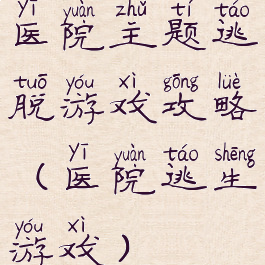 yī yuàn zhǔ tí táo
医院主题逃
tuō yóu xì gōng lüè
脱游戏攻略
yī yuàn táo shēng
（医院逃生
yóu xì
游戏）